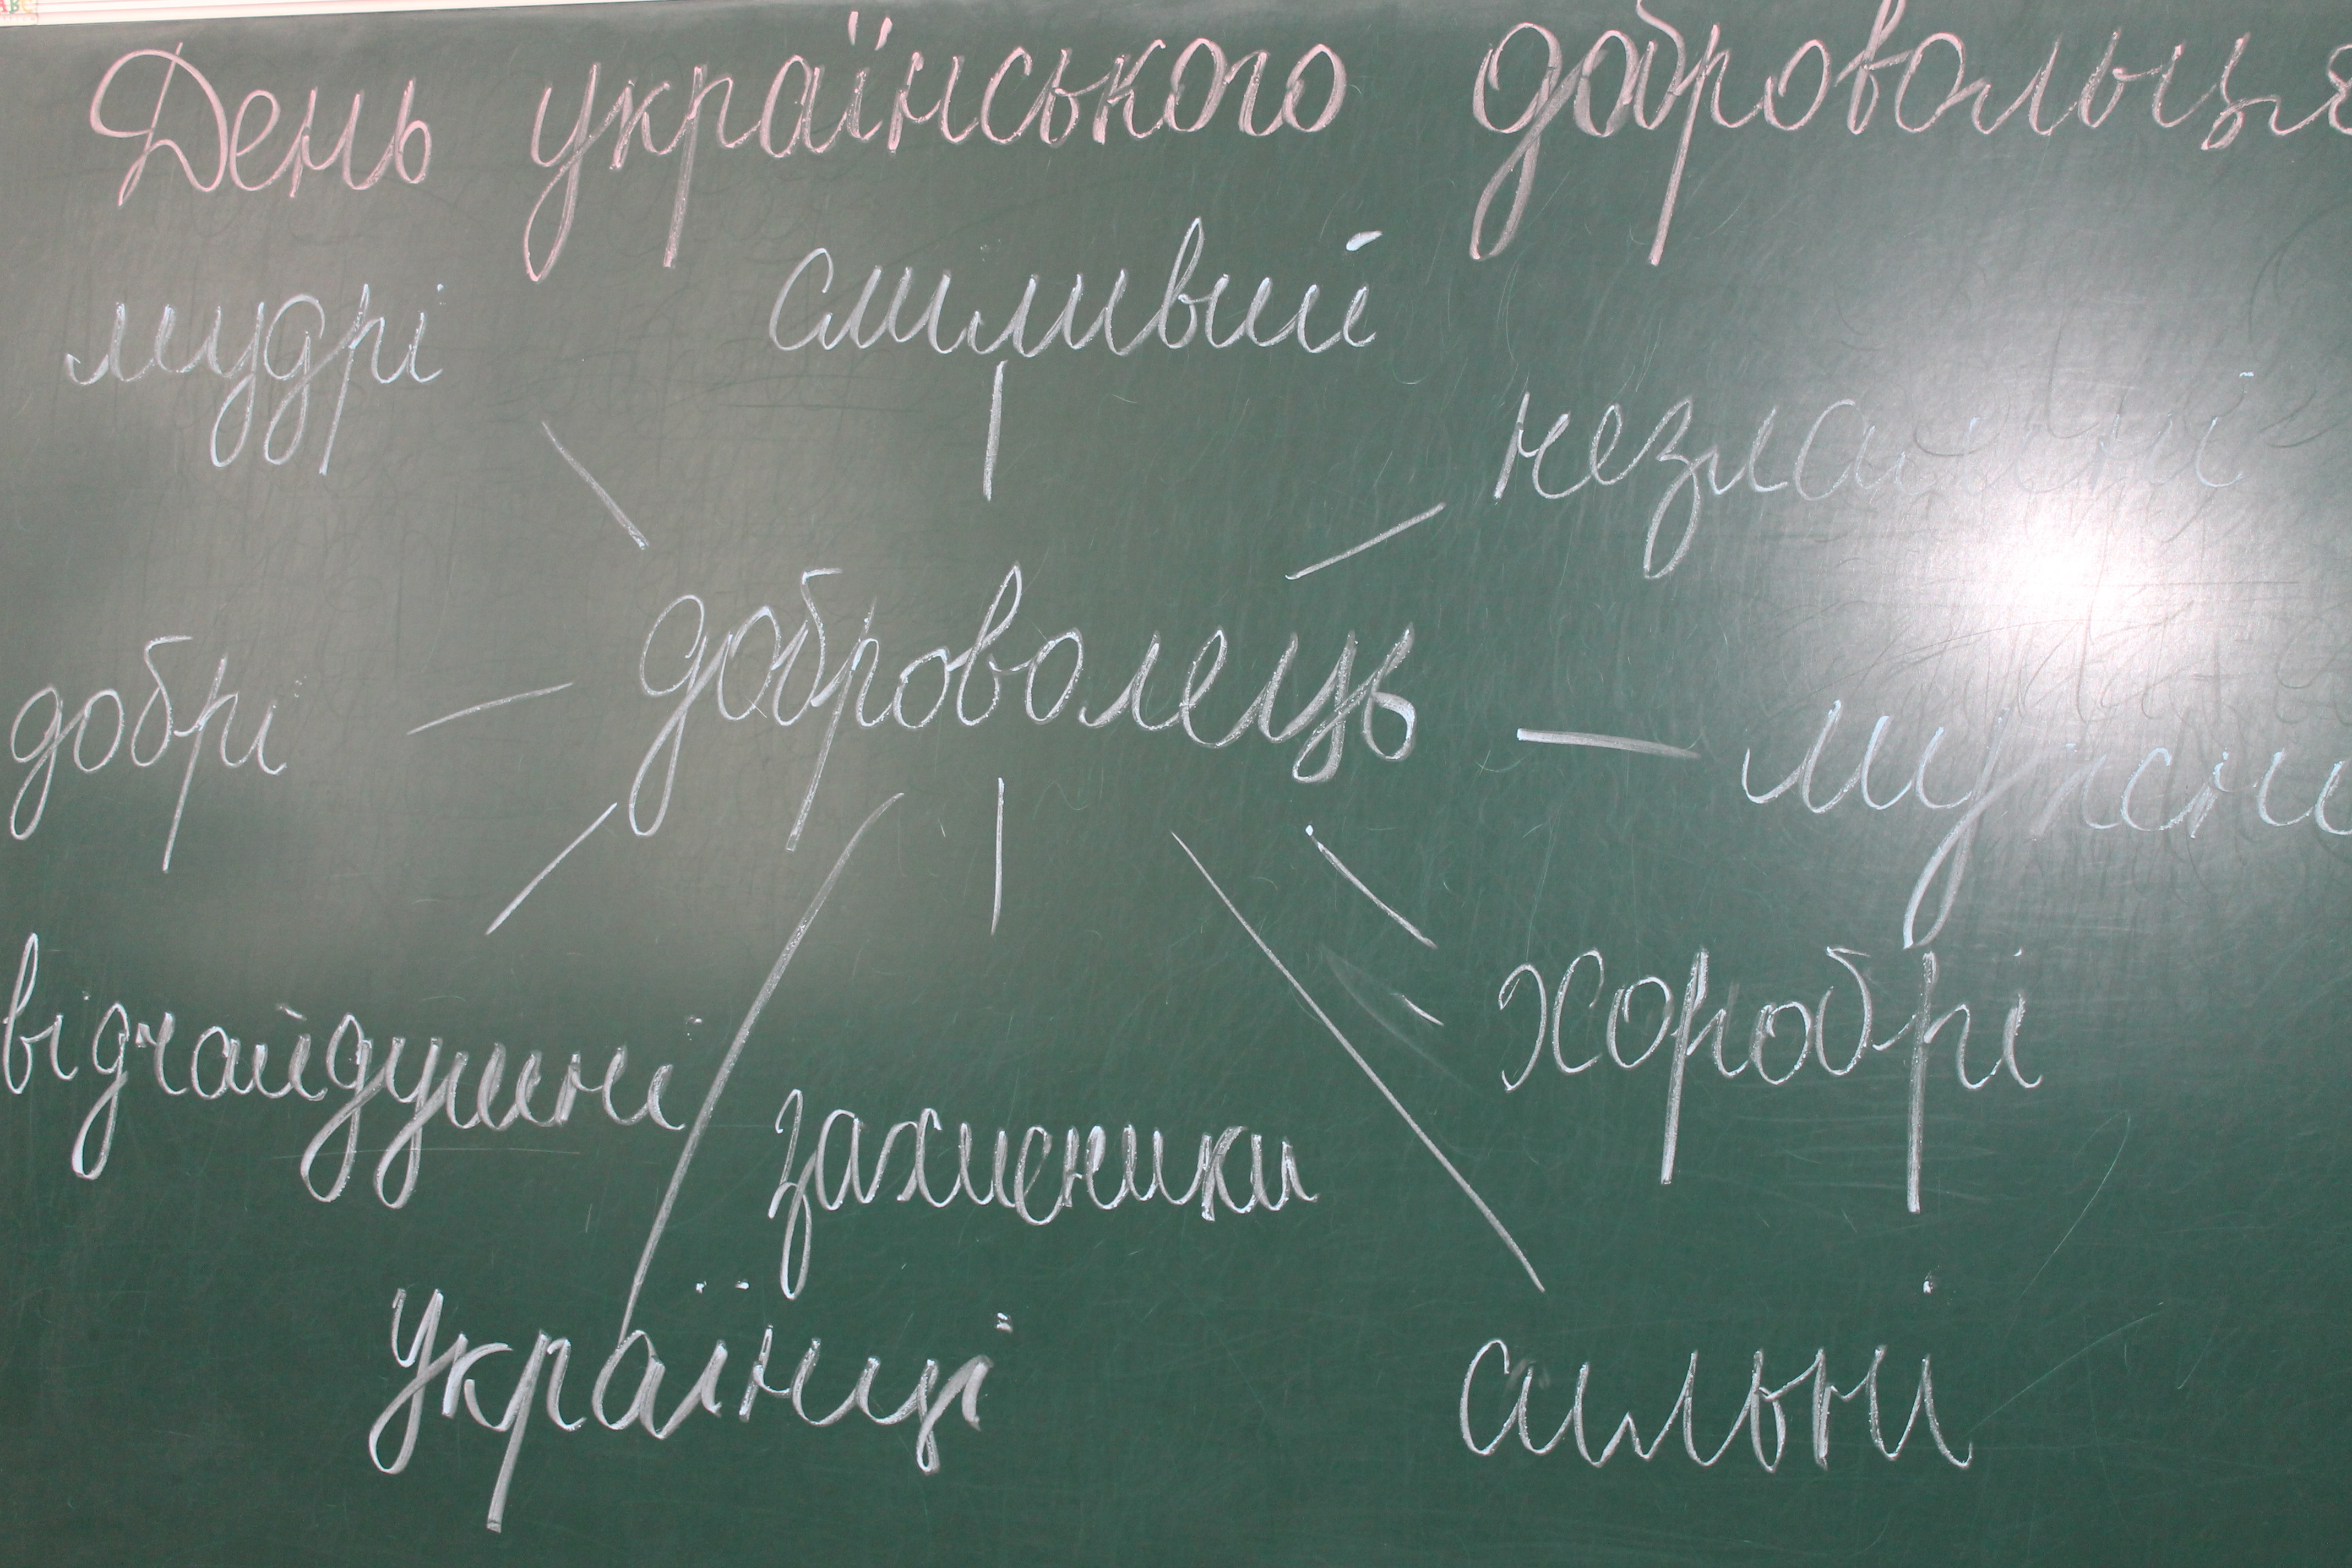 День українського добровольця
сміливий
мудрі
незламні
доброволець
добрі
мужні
відчайдушні
хоробрі
захисники
Українці
сильні